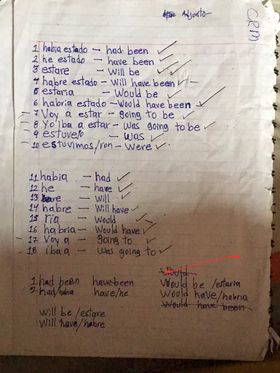 Agosto
CRM
1 habia estado - had been ✓
2 he estado - have been ✓
3 estare - Will be ✓
4 habre estado - Will have been ✓
5 estaria - Would be ✓
6 habria estado - Would have been ✓
7 Voy a estar - going to be ✓
8 Yo iba a estar - Was going to be ✓
9 estuve/o - was ✓
10 estuvimos/ron - Were ✓
11 habia - had ✓
12 he - have ✓
13 - Will ✓
14 habre - Will have ✓
15 ria - Would ✓
16 habria - Would have ✓
17 Voy a - going to ✓
18 iba a - was going to ✓
Would
1 had been have been Would be /estaria
2 had/habia have/he Would have/habria
Would have been
Will be /estare
Will have/habre